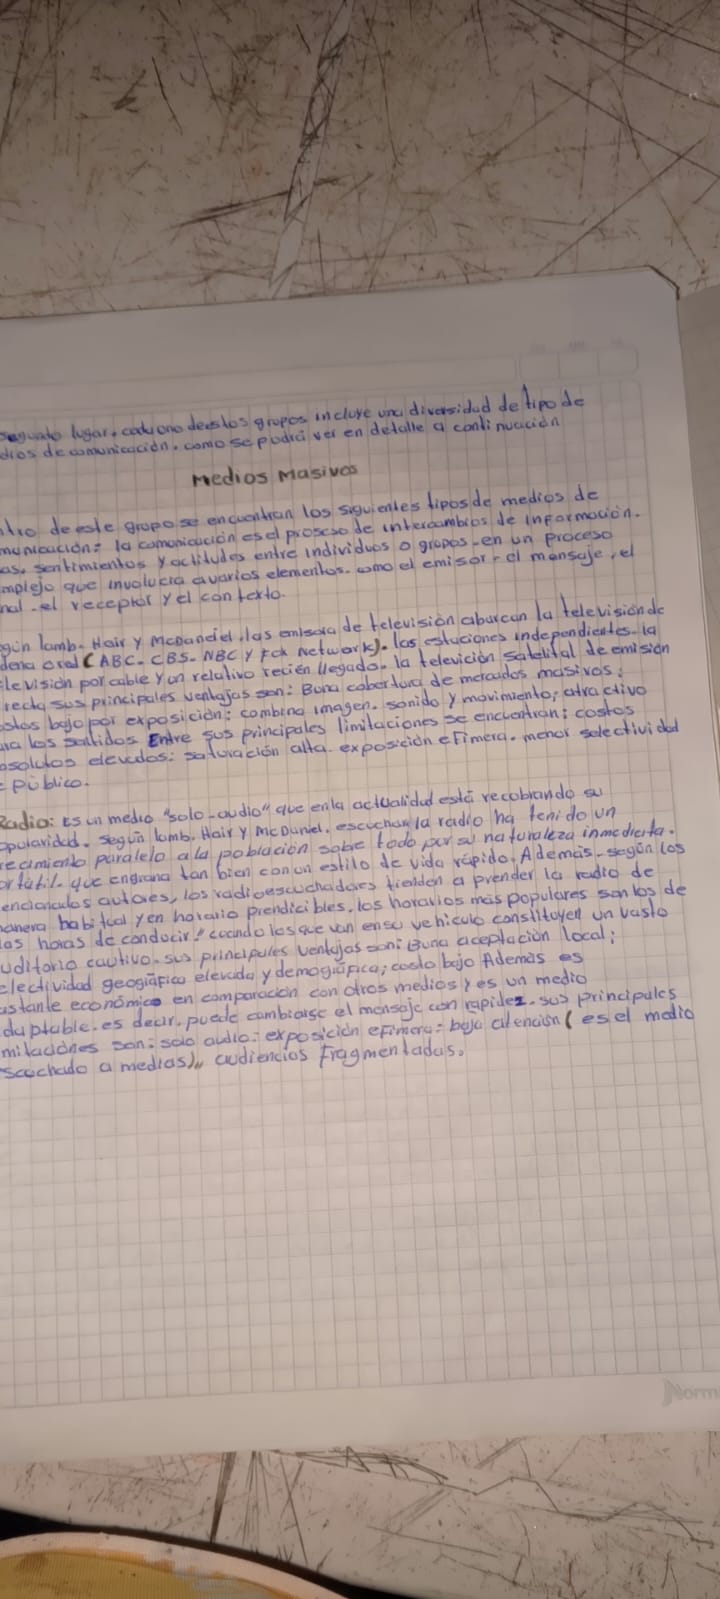 segundo lugar, cada uno de estos grupos incluye una diversidad de tipo de
dios de comunicación, como se podrá ver en detalle a continuación
Medios Masivos
ntro de este grupo se encuentran los siguientes tipos de medios de
municación: la comunicación es el proseso de intercambios de información.
as, sentimientos y actitudes entre individuos o grupos. en un proceso
mplejo que involucra a varios elementos. como el emisor - el mensaje, el
nal. el receptor y el contexto.
gún lamb. Hair y McDaniel, las emisora de televisión abarcan la televisión de
dena o red (ABC - CBS - NBC y Fox Network). las estaciones independientes. la
levisión por cable y un relativo recién llegado. la televición satelital de emisión
recta sus principales ventajas son: Buna cobertura de mercados masivos;
ostos bajo por exposición: combina imagen. sonido y movimiento; atractivo
ara los sentidos Entre sus principales limitaciones se encuentran: costos
bsolutos elevados; saturación alta. exposición efímera. menor selectividad
público.
Radio: Es un medio "solo-audio" que en la actualidad está recobrando su
opularidad. según lamb. Hair y McDaniel, escuchar la radio ha tenido un
recimiento paralelo a la población sobe todo por su naturaleza inmediata.
ortátil. que engrana tan bien con un estilo de vida rápido. Además - según los
encionados autores, los radioescuchadores tienden a prender la radio de
anera habitual y en horario prendicibles. los horarios más populares son los de
las horas de conducir" cuando los que van en su vehículo constituyen un vasto
uditorio cautivo. sus principales ventajas son: Buna aceptación local;
electividad geográfica elevada y demográfica; costo bajo Además es
astante económico en comparación con otros medios y es un medio
daptable. es decir, puede cambiarse el mensaje con rapidez. sus principales
mitaciones son: solo audio: exposición efímera: baja atención (es el medio
scuchado a medias),, audiencias Fragmentadas.
Norm